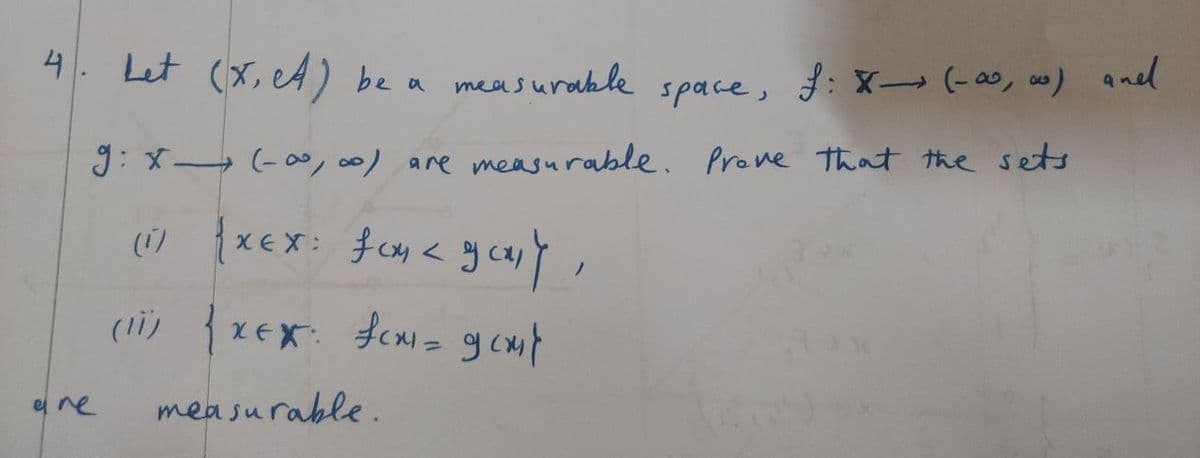 4. Let (X, A) be a measurable space, f: X → (-∞, ∞) and
g: X → (-∞, ∞) are measurable. Prove that the sets
(i) {x ∈ X: f(x) < g(x)},
(ii) {x ∈ X: f(x) = g(x)}
are measurable.